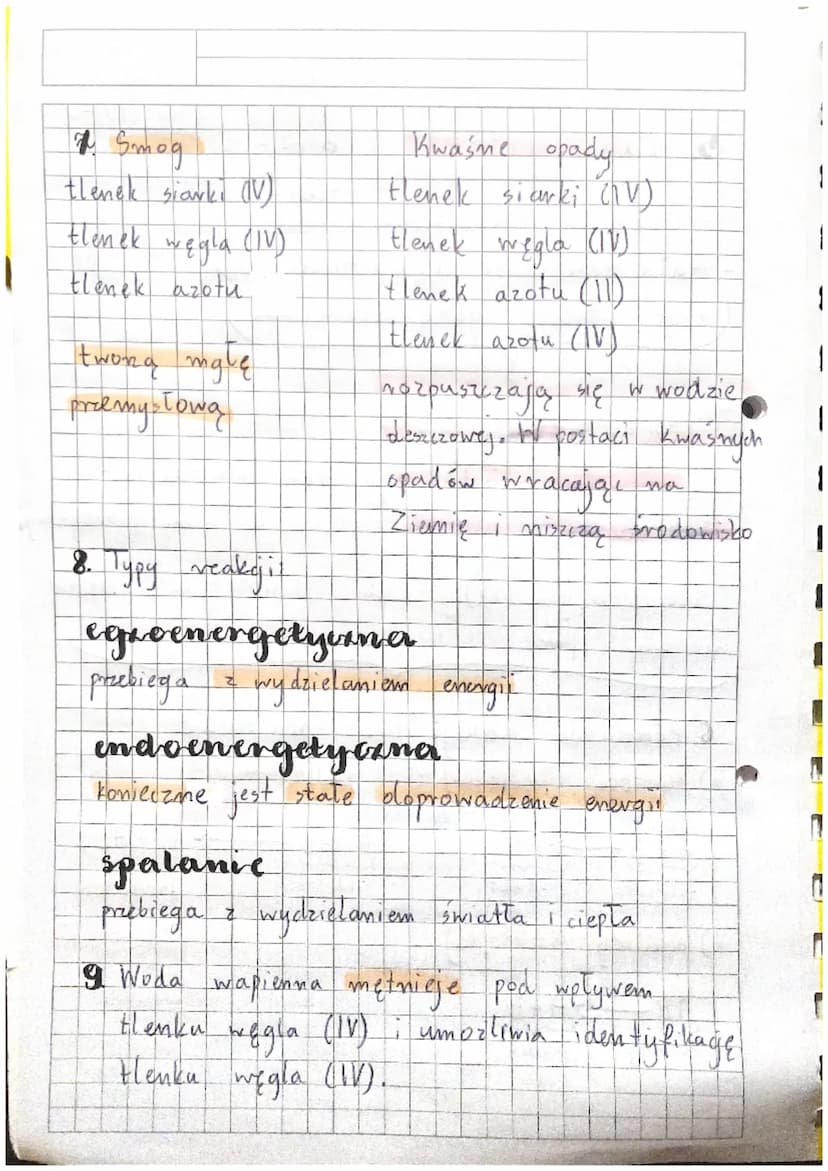 7. Smog
tlenek siarki (IV)
tlenek węgla (IV)
tlenek azotu
tworzą mgłę
przemysłową
Kwaśne opady
tlenek siarki (IV)
tlenek węgla (IV)
tlenek azotu (II)
tlenek azotu (IV)
rozpuszczają się w wodzie
deszczowej. W postaci kwaśnych
opadów wracając na
Ziemię i niszczą środowisko
8. Typy reakcji:
egzoenergetyczna
przebiega z wydzielaniem energii
endoenergetyczna
konieczne jest stałe doprowadzenie energii
spalanie
przebiega z wydzielaniem światła i ciepła
9 Woda wapienna mętnieje pod wpływem
tlenku węgla (IV) i umożliwia identyfikację
tlenku węgla (IV).